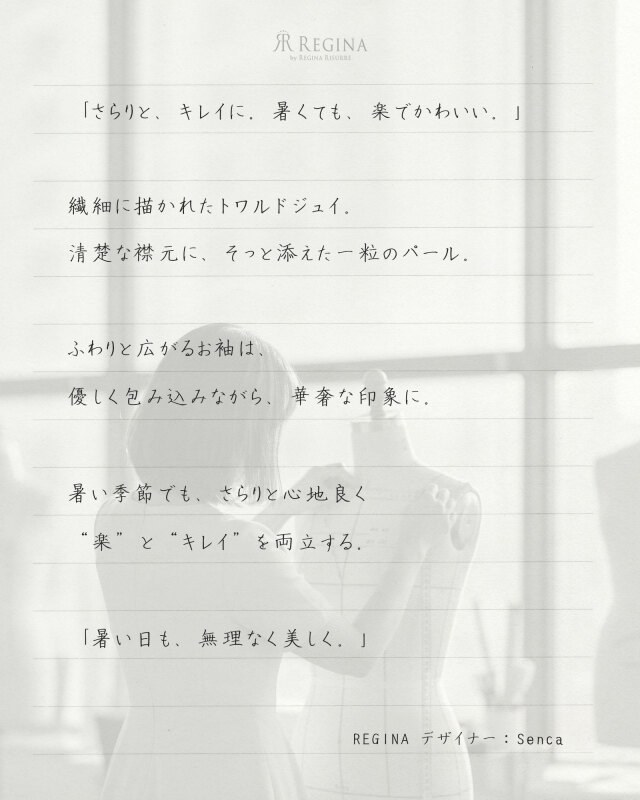 REGINA
by REGINA RISURRE
「さらりと、キレイに．暑くても、楽でかわいい．」
繊細に描かれたトワルドジュイ．
清楚な襟元に、そっと添えた一粒のパール．
ふわりと広がるお袖は、
優しく包み込みながら、華奢な印象に．
暑い季節でも、さらりと心地良く
“楽” と “キレイ” を両立する．
「暑い日も、無理なく美しく．」
REGINA デザイナー：Senca